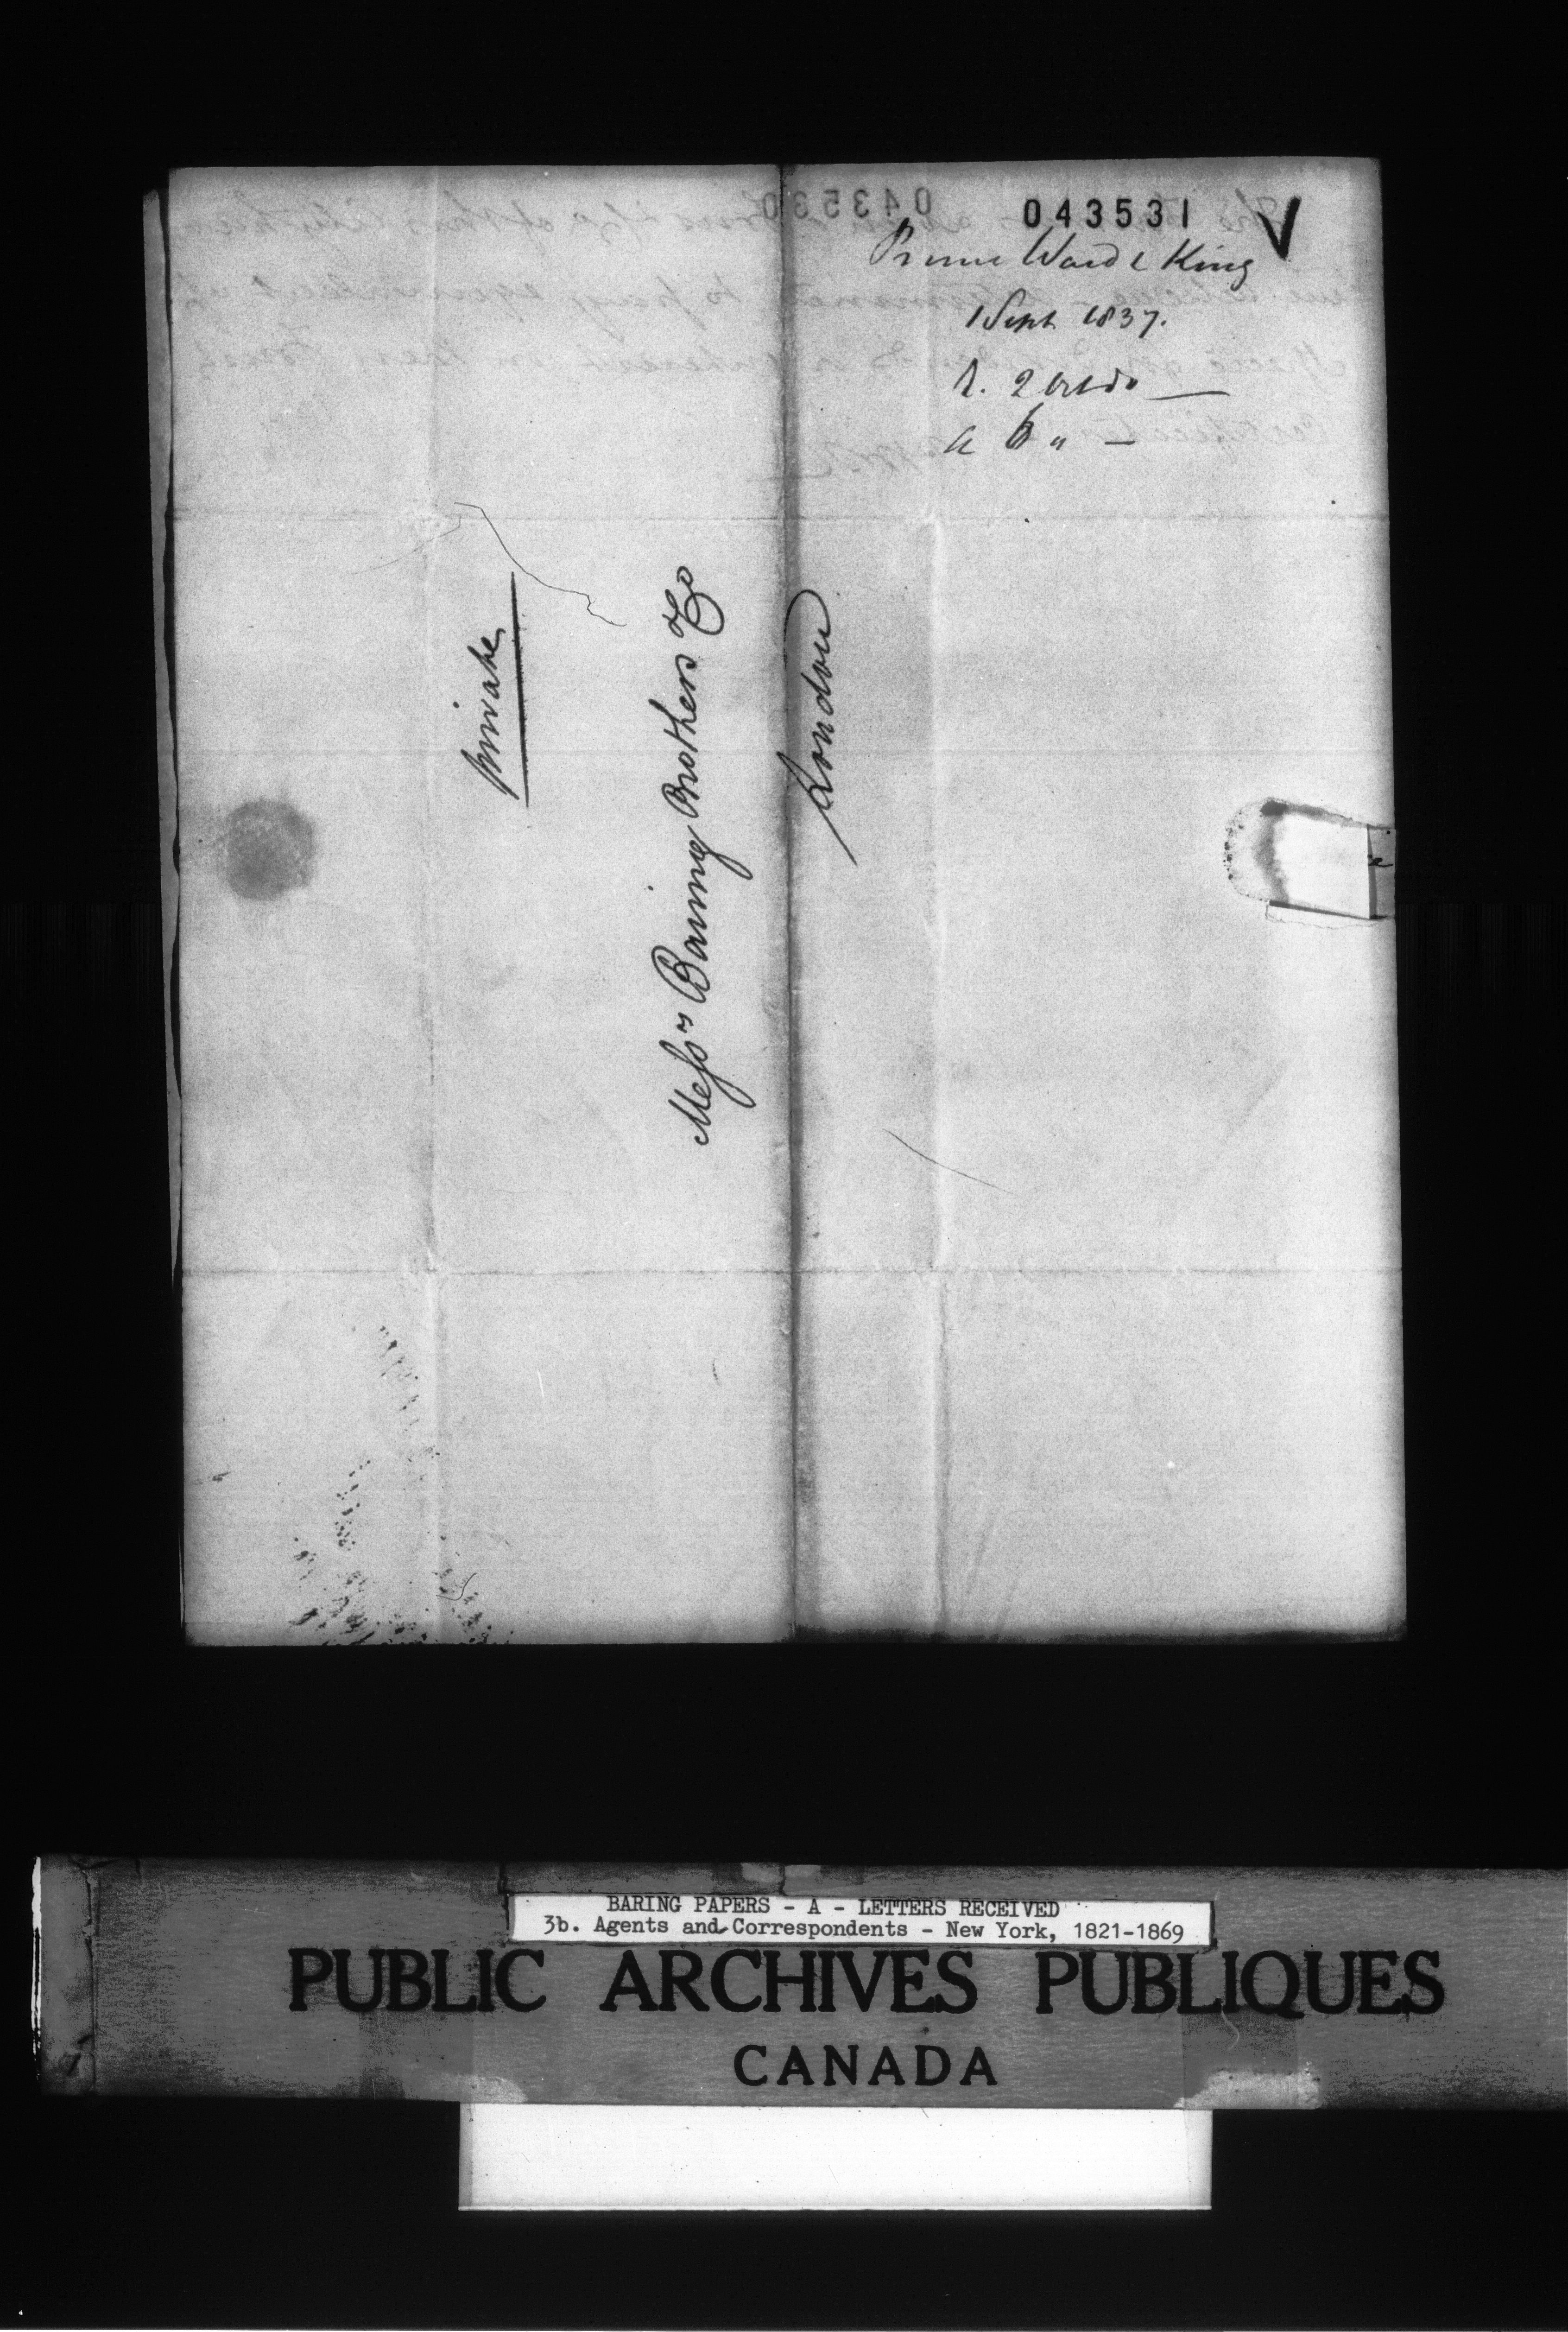 043531
Prime Ward & King
1 Sept 1837.
R. 2 Oct do
a 6 "
private
Messrs Baring Brothers & Co
London
BARING PAPERS - A - LETTERS RECEIVED
3b. Agents and Correspondents - New York, 1821-1869
PUBLIC ARCHIVES PUBLIQUES
CANADA